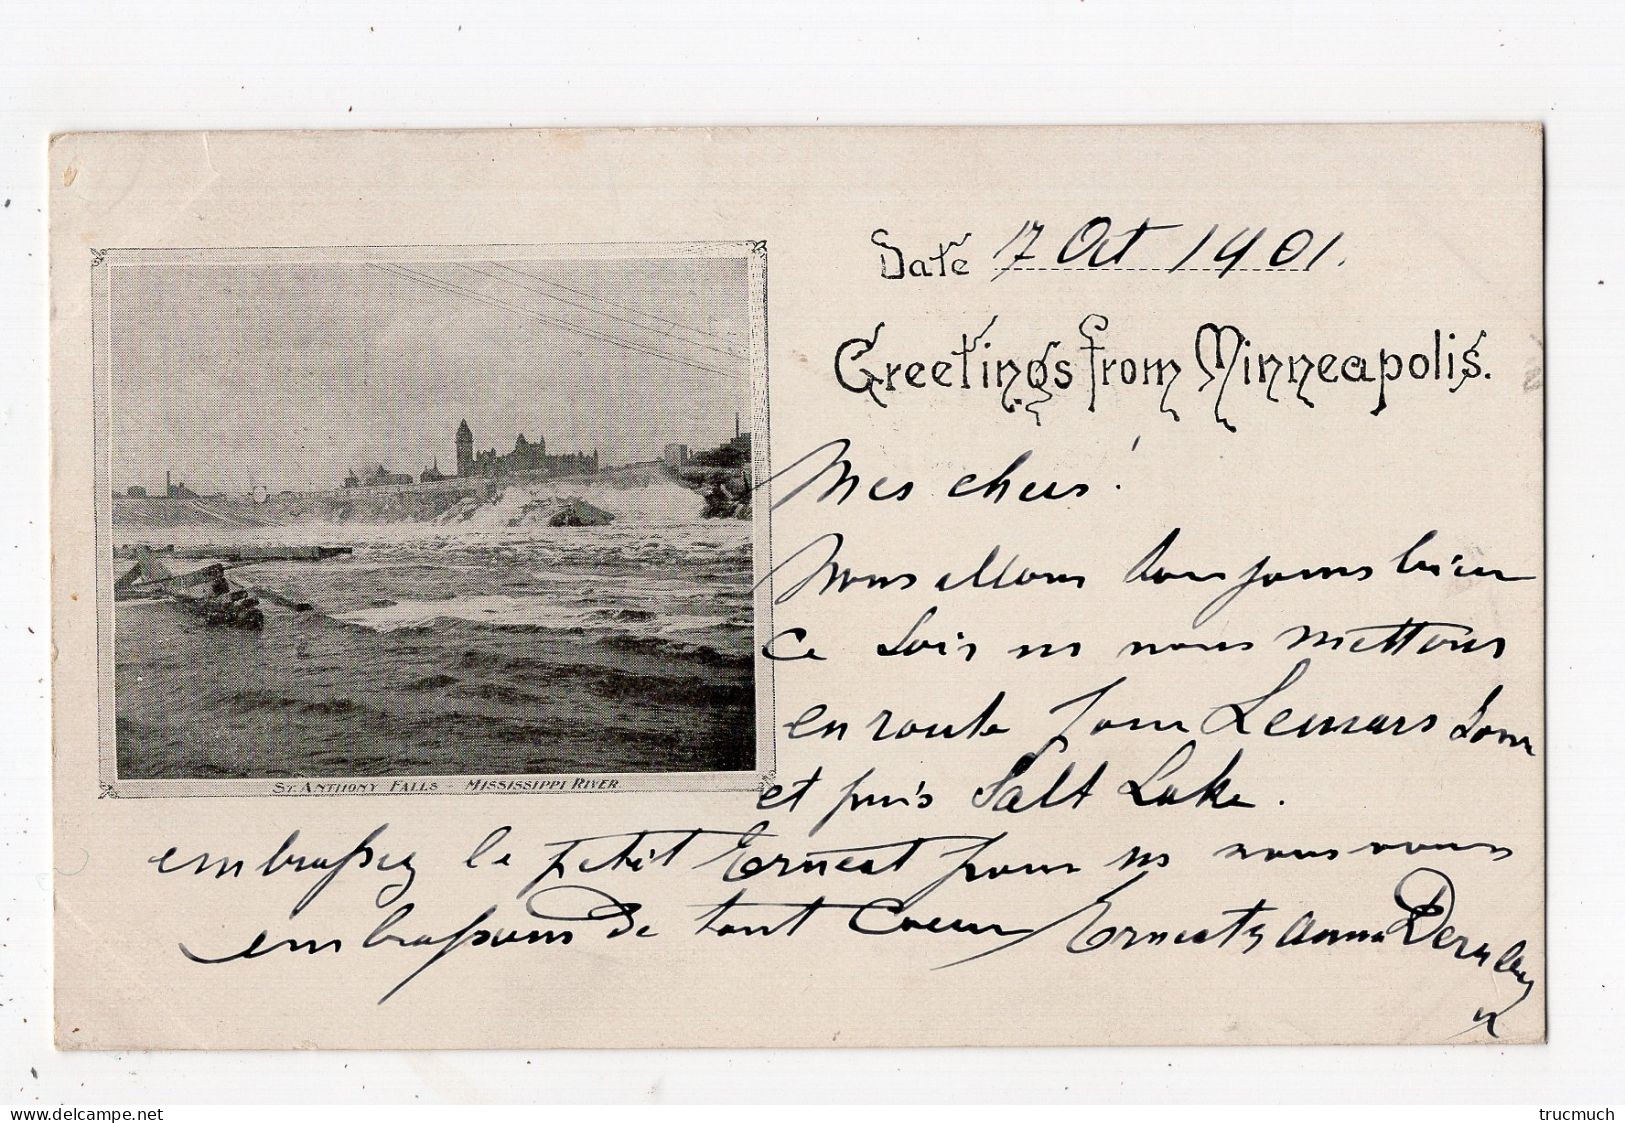 Date 17 Oct 1901.
Greetings from Minneapolis.
Mes chers!
Nous allons toujours bien
ce soir ns nous mettons
en route pour Lemars
et puis Salt Lake.
embrassez le petit Ernest pour ns nous vous
embrassons de tout coeur Ernest & Anna
St. Anthony Falls - Mississippi River
delcampe.net
trucmuch